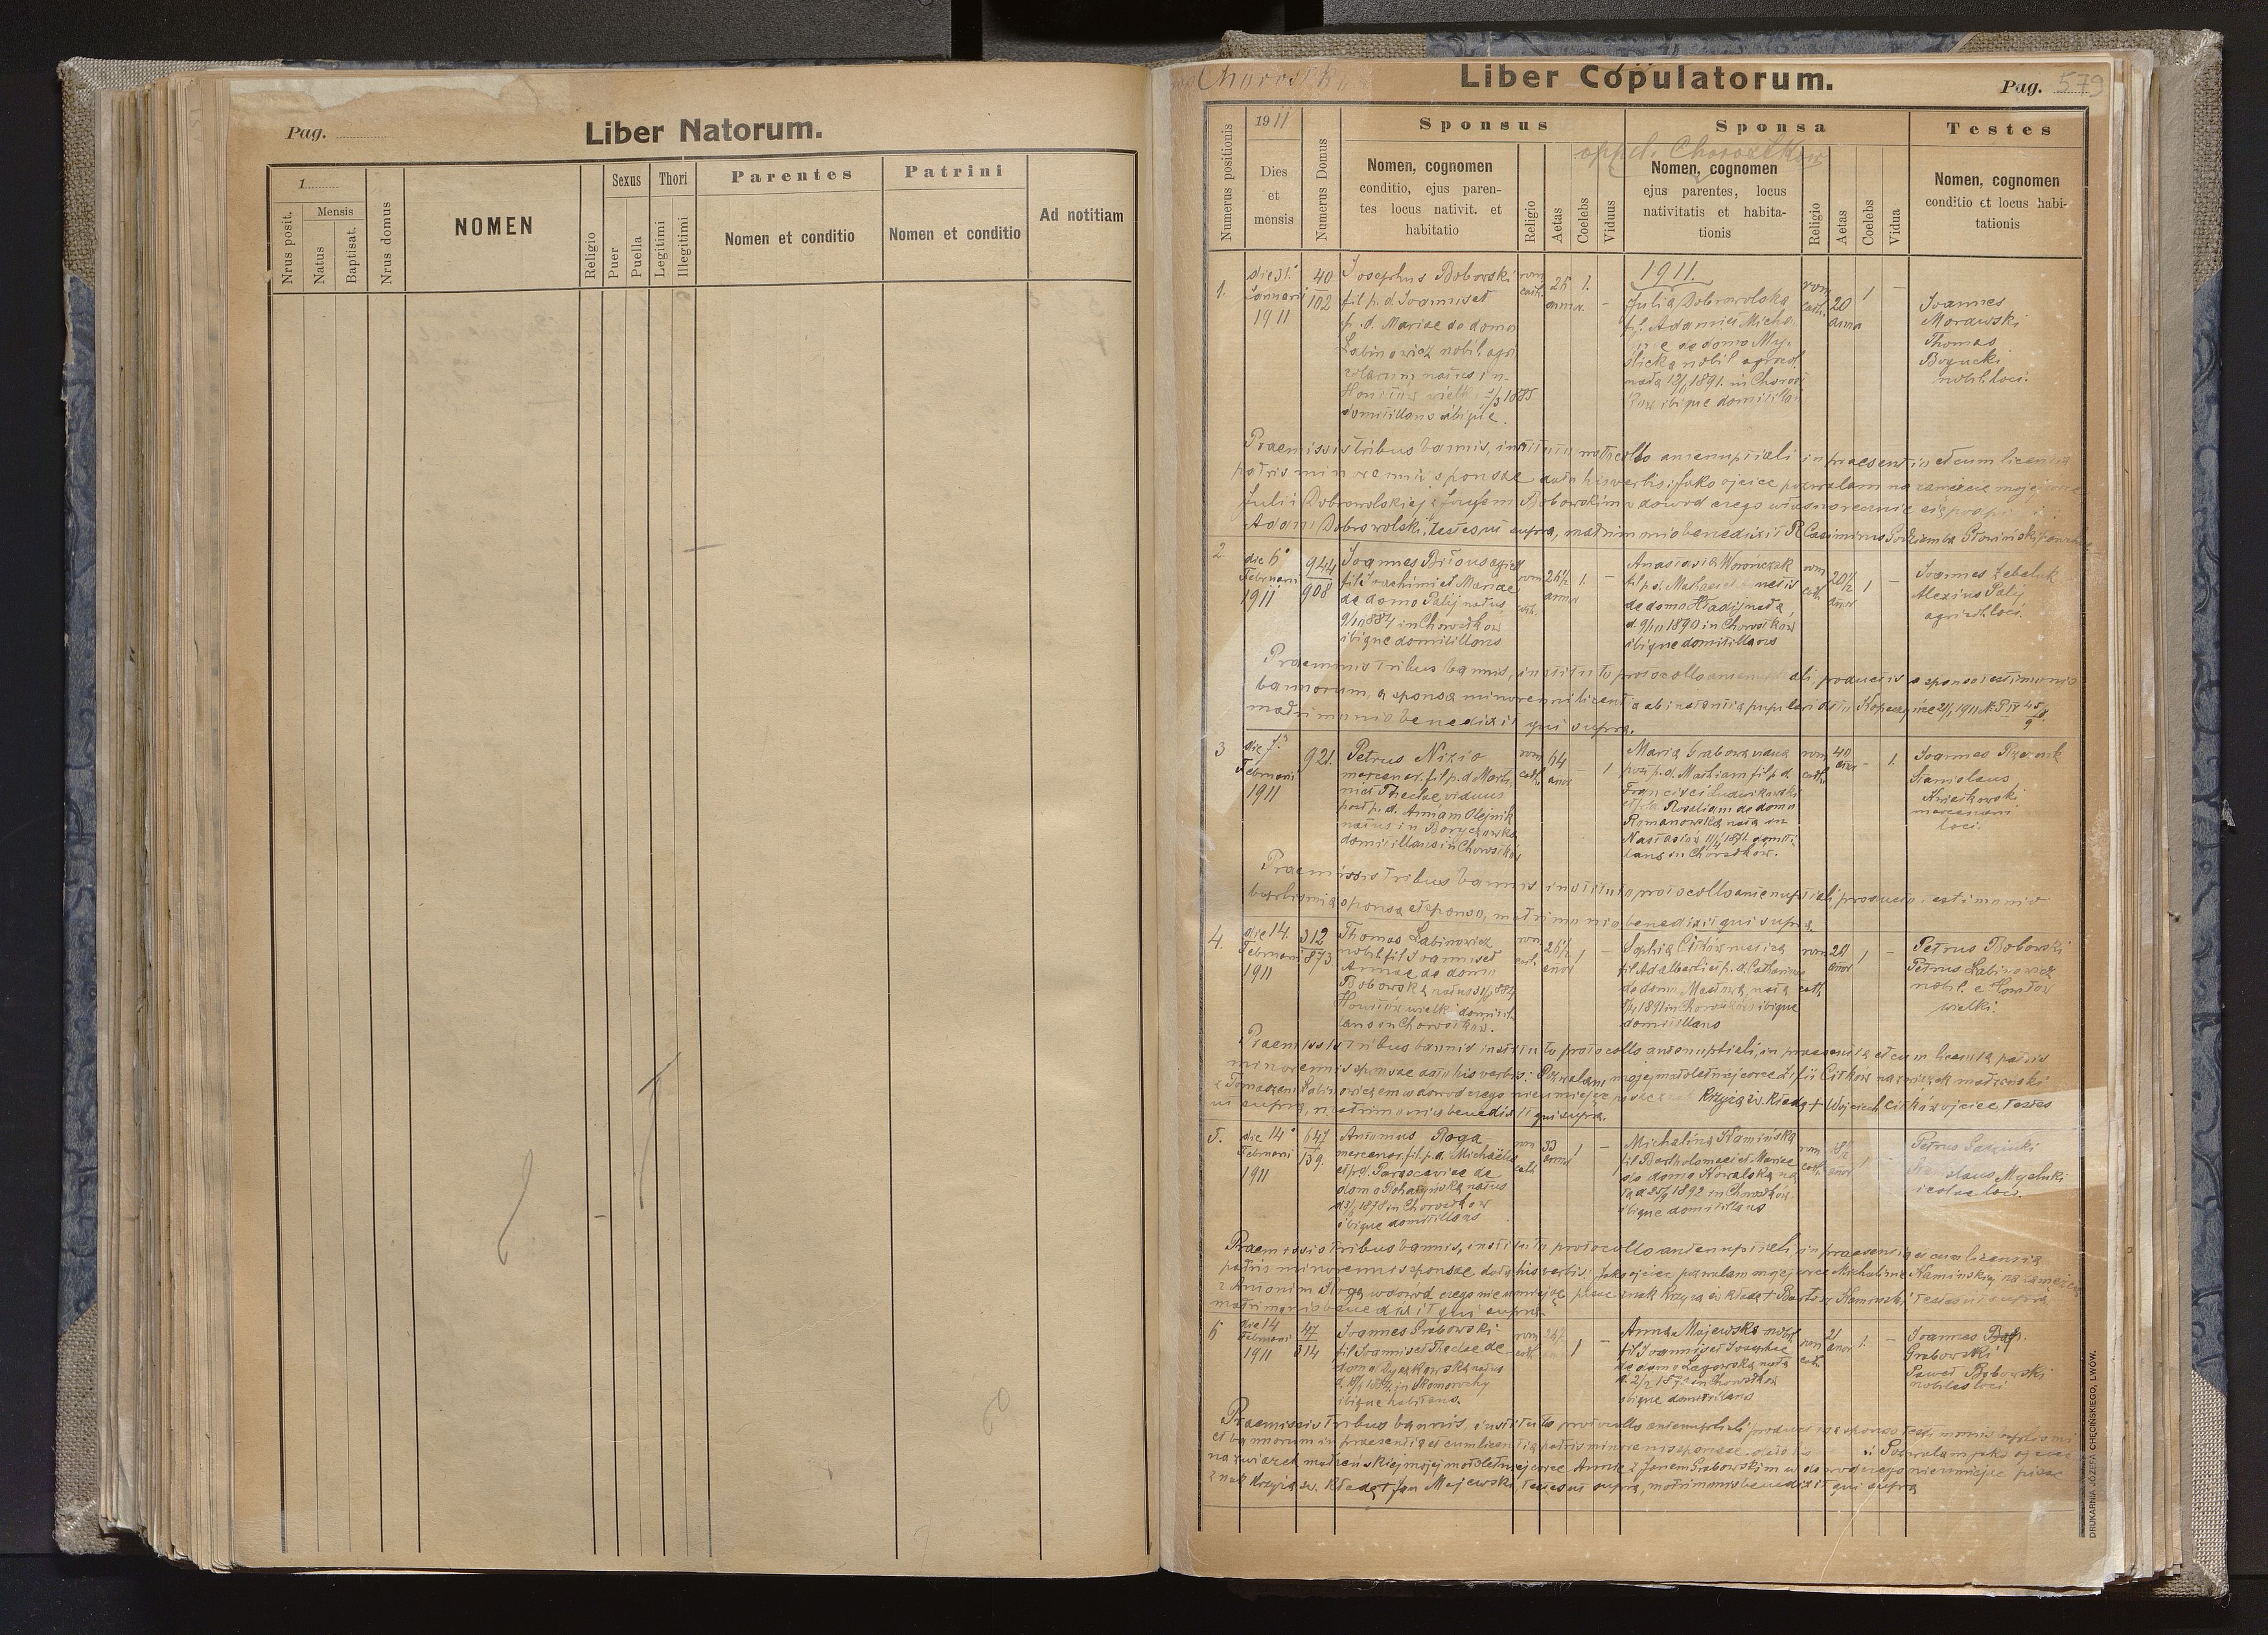 Pag.
Liber Natorum.
1
Nrus posit.
Mensis
Natus
Baptisat.
Nrus domus
NOMEN
Religio
Sexus
Puer
Puella
Thori
Legitimi
Illegitimi
Parentes
Nomen et conditio
Patrini
Nomen et conditio
Ad notitiam
Liber Copulatorum.
Pag. 579
Numerus positionis
1911
Dies
et
mensis
Numerus Domus
Sponsus
Nomen, cognomen
conditio, ejus paren-
tes locus nativit. et
habitatio
Religio
Aetas
Coelebs
Viduus
Sponsa
oppid. Chorostków
Nomen, cognomen
ejus parentes, locus
nativitatis et habita-
tionis
Religio
Aetas
Coelebs
Vidua
Testes
Nomen, cognomen
conditio et locus habi-
tationis
1.
die 31
Januarii
1911
40
102
Josephus Bobowski
fil p. d. Joannis et
p. d. Mariae de domo
Łabinowicz nobil. agri
colarum natus in
domicilians ibique.
rom
cath.
25
annor.
1.
–
1911.
Julia Dobrowolska
fil. Adami et Micha
de domo My-
nata 12/1 1891. in Chorost
ków ibique domicilians
rom
cath.
20
anno
1
–
Joannes
Morawski
Thomas
Bogucki
nobil. loci.
Praemissis tribus bannis, instituto protocollo antenuptiali in praesentia et cum licentia
patris minorennis sponsae data his verbis: Jako ojciec pozwalam na zamęście mojej
Julii Dobrowolskiej z Józefem Bobowskim w dowód czego własnoręcznie się podpisuję
Adam Dobrowolski, testes ut supra, matrimonio benedixit R. Casimirus
2
die 6
Februarii
1911
944
908
Joannes
fil Joachimi et Mariae
de domo Palij natus
in Chorostków
ibique domicilians
rom
cath.
26½
annor
1.
–
Anastasia Worończak
de domo Hladij nata
d. 1890 in Chorostków
ibique domicilians
rom
cath.
annor
1
–
Joannes Zebeluk
Alexius Palij
agricol. loci.
Praemissis tribus bannis, instituto protocollo antenuptiali, producto a sponso testimonio
bannorum, a sponsa minorenni licentia ab instantia pupilari
matrimonio benedixit qui supra.
3
die 7
Februarii
1911
921.
Petrus Nizio
mercenar. fil p. d. Marti
ni et Theclae viduus
post p. d. Annam Olejnik
natus in Boryczówka
domicilians in Chorostków
rom
cath.
64
annor
–
1
Maria Grabowa vidua
post p. d. Mathiam fil p. d.
Francisci Ludwikowski
et p. d. Rosaliam de domo
Romanowska nata in
Nastasów 1871. domici-
lans in Chorostków.
rom
cath.
40
annor
–
1.
Joannes
Stanislaus
Kwiatkowski
mercenarii
loci.
Praemissis tribus bannis instituto protocollo antenuptiali producto testimonio
baptismi a sponsa et sponso, matrimonio benedixit qui supra.
4.
die 14.
Februarii
1911
312
873
Thomas Łabinowicz
nobil. fil Joannis et
Annae de domo
Bobowska natus 1884
Howiłów wielki domicil
ians in Chorostków.
rom
cath.
26½
annor
1
–
Sophia
fil Adalberti et p. d. Catharinae
de domo nata
1891 in Chorostków ibique
domicilians
rom
cath
20
annor
1
–
Petrus Bobowski
Petrus Łabinowicz
nobil. e Howiłów
wielki.
Praemissis tribus bannis instituto protocollo antenuptiali, in praesentia et cum licentia patris
minorennis sponsae data his verbis: Pozwalam mojej małoletniej córce Zofii Citków na związek małżeński
z Tomaszem Łabinowiczem w dowód czego nieumiejąc pisać znak Krzyża św. kładę + Wojciech Citków ojciec, testes
ut supra, matrimonio benedixit qui supra.
5.
die 14
Februarii
1911
647
139.
Antonius Roga
mercenar. fil. p. d. Michaëlis
et p. d. Parasceviae de
domo natus
1878 in Chorostków
ibique domicilians
rom
cath
33
annor
1
–
Michalina Kamińska
fil Bartholomaei et Mariae
de domo Kowalska na
ta d. 1892 in Chorostków
ibique domicilians
rom
cath.
annor
1
Petrus
Stanislaus
loci.
Praemissis tribus bannis, instituto protocollo antenuptiali, in praesentia et cum licentia
patris minorennis sponsae data his verbis: Jako ojciec pozwalam mojej córce Michalinie Kamińskiej na zamęście
z Antonim Rogą w dowód czego nieumiejąc pisać znak Krzyża św. kładę + Bartosz Kamiński testes ut supra
matrimonio benedixit qui supra
6
die 14
Februarii
1911
47
314
Joannes Grabowski
fil Joannis et Theclae de
domo natus
in Skomorochy
ibique habitans.
rom
cath
1
–
Anna Majewska nobil.
fil Joannis et Josephae
de domo Zagowska nata
in Chorostków
ibique domicilians
rom
cath.
21
annor
1.
–
Joannes
Grabowski
Paweł Bobowski
nobiles loci
Praemissis tribus bannis, instituto protocollo antenuptiali producto a sponso testimonio baptismi
et bannorum in praesentia et cum licentia patris minorennis sponsae data Pozwalam jako ojciec
na związek małżeński mojej małoletniej córce Annie z Janem Grabowskim w dowód czego nieumiejąc pisać
znak Krzyża św. kładę + Jan Majewski, testes ut supra, matrimonio benedixit qui supra
DRUKARNIA JÓZEFA CHĘCIŃSKIEGO, LWÓW.